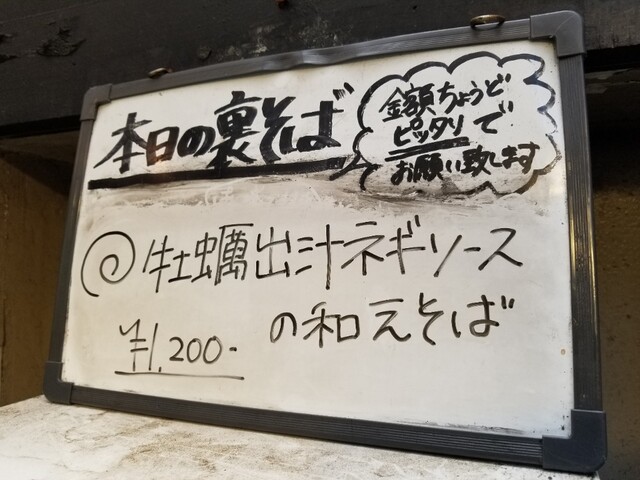 本日の裏そば
金額ちょうど
ピッタリで
お願い致します
牡蠣出汁ネギソース
の和えそば
¥1,200-